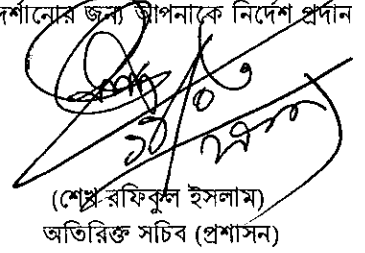 দর্শানোর জন্য আপনাকে নির্দেশ প্রদান
(শেখ রফিকুল ইসলাম)
অতিরিক্ত সচিব (প্রশাসন)